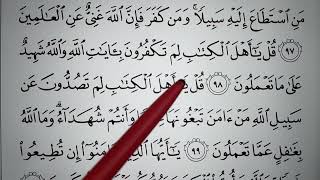 مَنِ ٱسْتَطَاعَ إِلَيْهِ سَبِيلًا ۚ وَمَن كَفَرَ فَإِنَّ ٱللَّهَ غَنِىٌّ عَنِ ٱلْعَـٰلَمِينَ
٩٧ قُلْ يَـٰٓأَهْلَ ٱلْكِتَـٰبِ لِمَ تَكْفُرُونَ بِـَٔايَـٰتِ ٱللَّهِ وَٱللَّهُ شَهِيدٌ
عَلَىٰ مَا تَعْمَلُونَ ٩٨ قُلْ يَـٰٓأَهْلَ ٱلْكِتَـٰبِ لِمَ تَصُدُّونَ عَن
سَبِيلِ ٱللَّهِ مَنْ ءَامَنَ تَبْغُونَهَا وَأَنتُمْ شُهَدَآءُ ۗ وَمَا ٱللَّهُ
بِغَـٰفِلٍ عَمَّا تَعْمَلُونَ ٩٩ يَـٰٓأَيُّهَا ٱلَّذِينَ ءَامَنُوٓا۟ إِن تُطِيعُوا۟